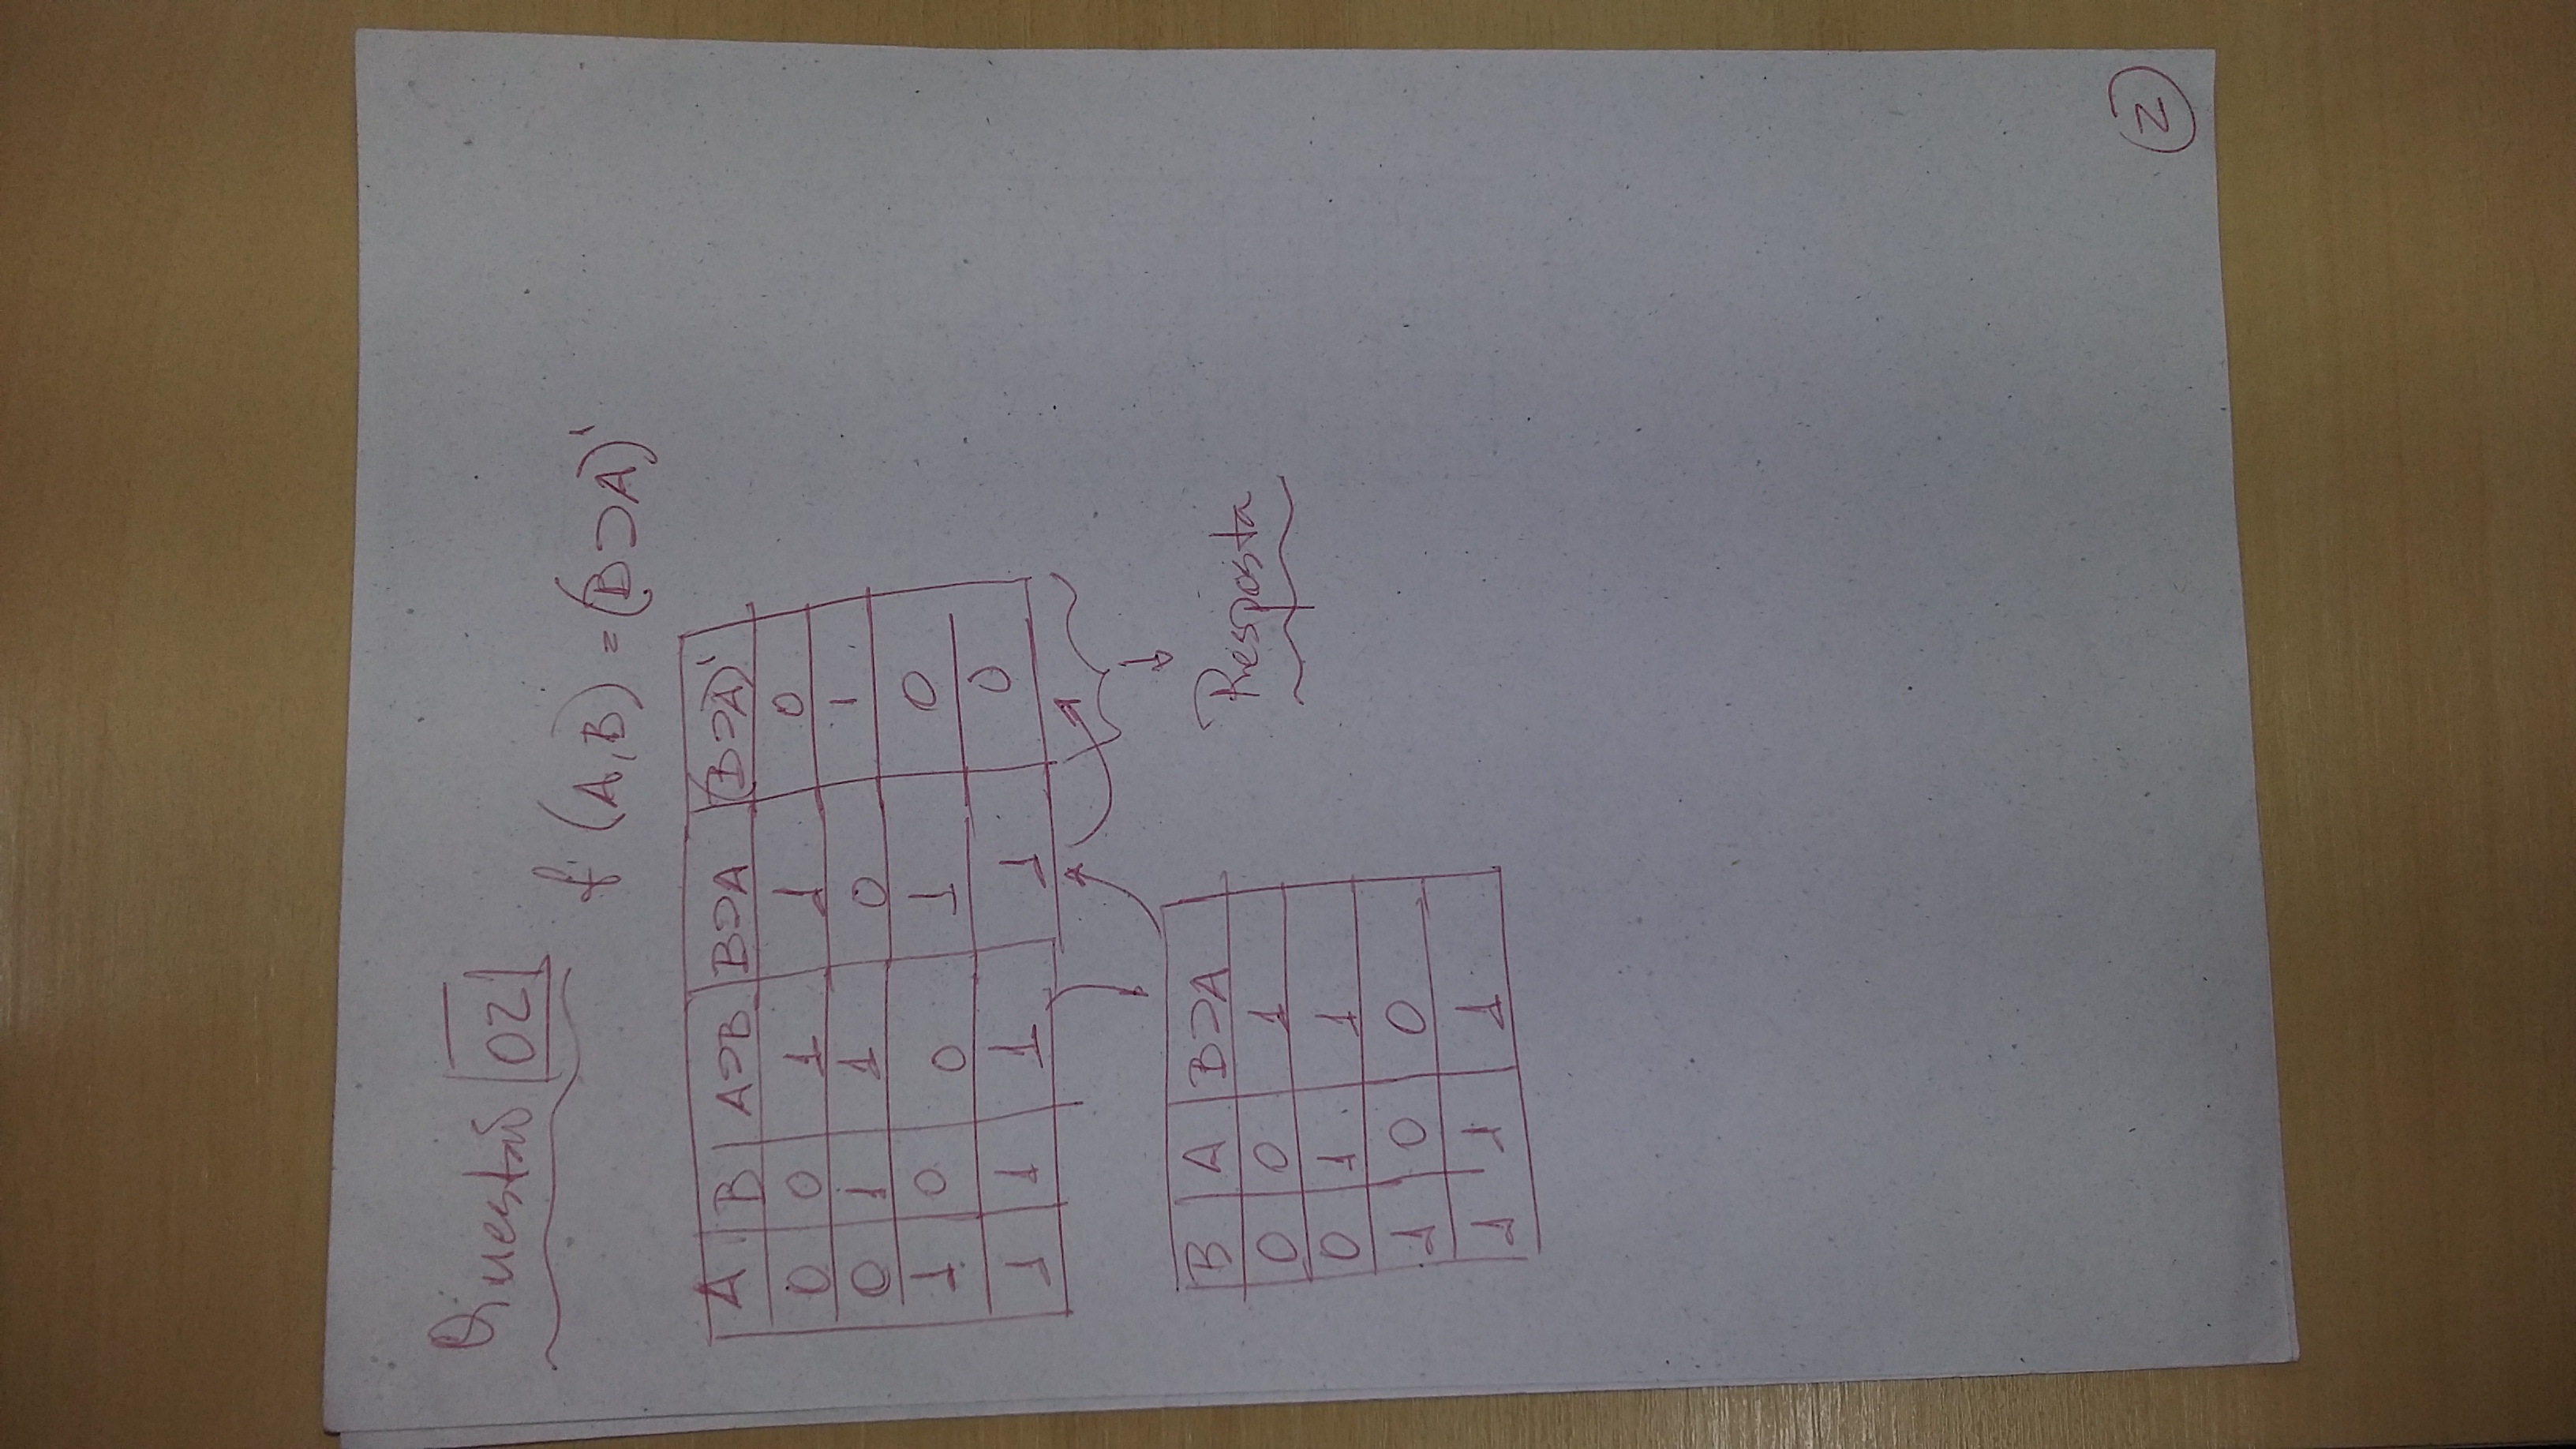 Questão 02
f(A,B) = (B⊃A)'
A B A⊃B B⊃A (B⊃A)'
0 0 1 1 0
0 1 1 0 1
1 0 0 1 0
1 1 1 1 0
Resposta
B A B⊃A
0 0 1
0 1 1
1 0 0
1 1 1
2